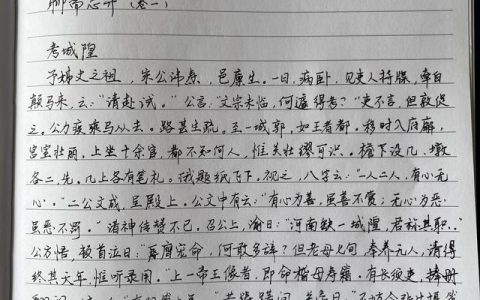 聊斋志异（卷一）
考城隍
予姊丈之祖，宋公讳焘，邑廪生。一日，病卧，见吏人持牒，牵白
颠马来，云：“请赴试。”公言：“文宗未临，何遽得考？”吏不言，但敦促
之。公力疾乘马从去。路甚生疏。至一城郭，如王者都。移时入府廨，
宫室壮丽。上坐十余官，都不知何人，惟关壮缪可识。檐下设几、墩
各二，先。几上各有笔札。俄题纸飞下。视之，八字云：“一人二人，有心无
心。”二公文成，呈殿上。公文中有云：“有心为善，虽善不赏；无心为恶，
虽恶不罚。”诸神传赞不已。召公上，谕曰：“河南缺一城隍，君称其职。”
公方悟，顿首泣曰：“辱膺宠命，何敢多辞？但老母七旬，奉养无人，请得
终其天年，惟听录用。”上一帝王像者，即命稽母寿籍。有长须吏，捧册